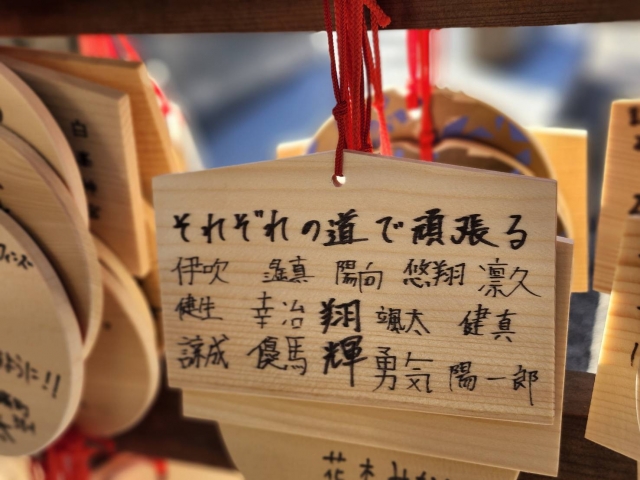 それぞれの道で頑張る
伊吹 陽向 悠翔 凛久
健生 幸治 翔 颯太 健真
譲成 優馬 輝 勇気 陽一郎
ように!!